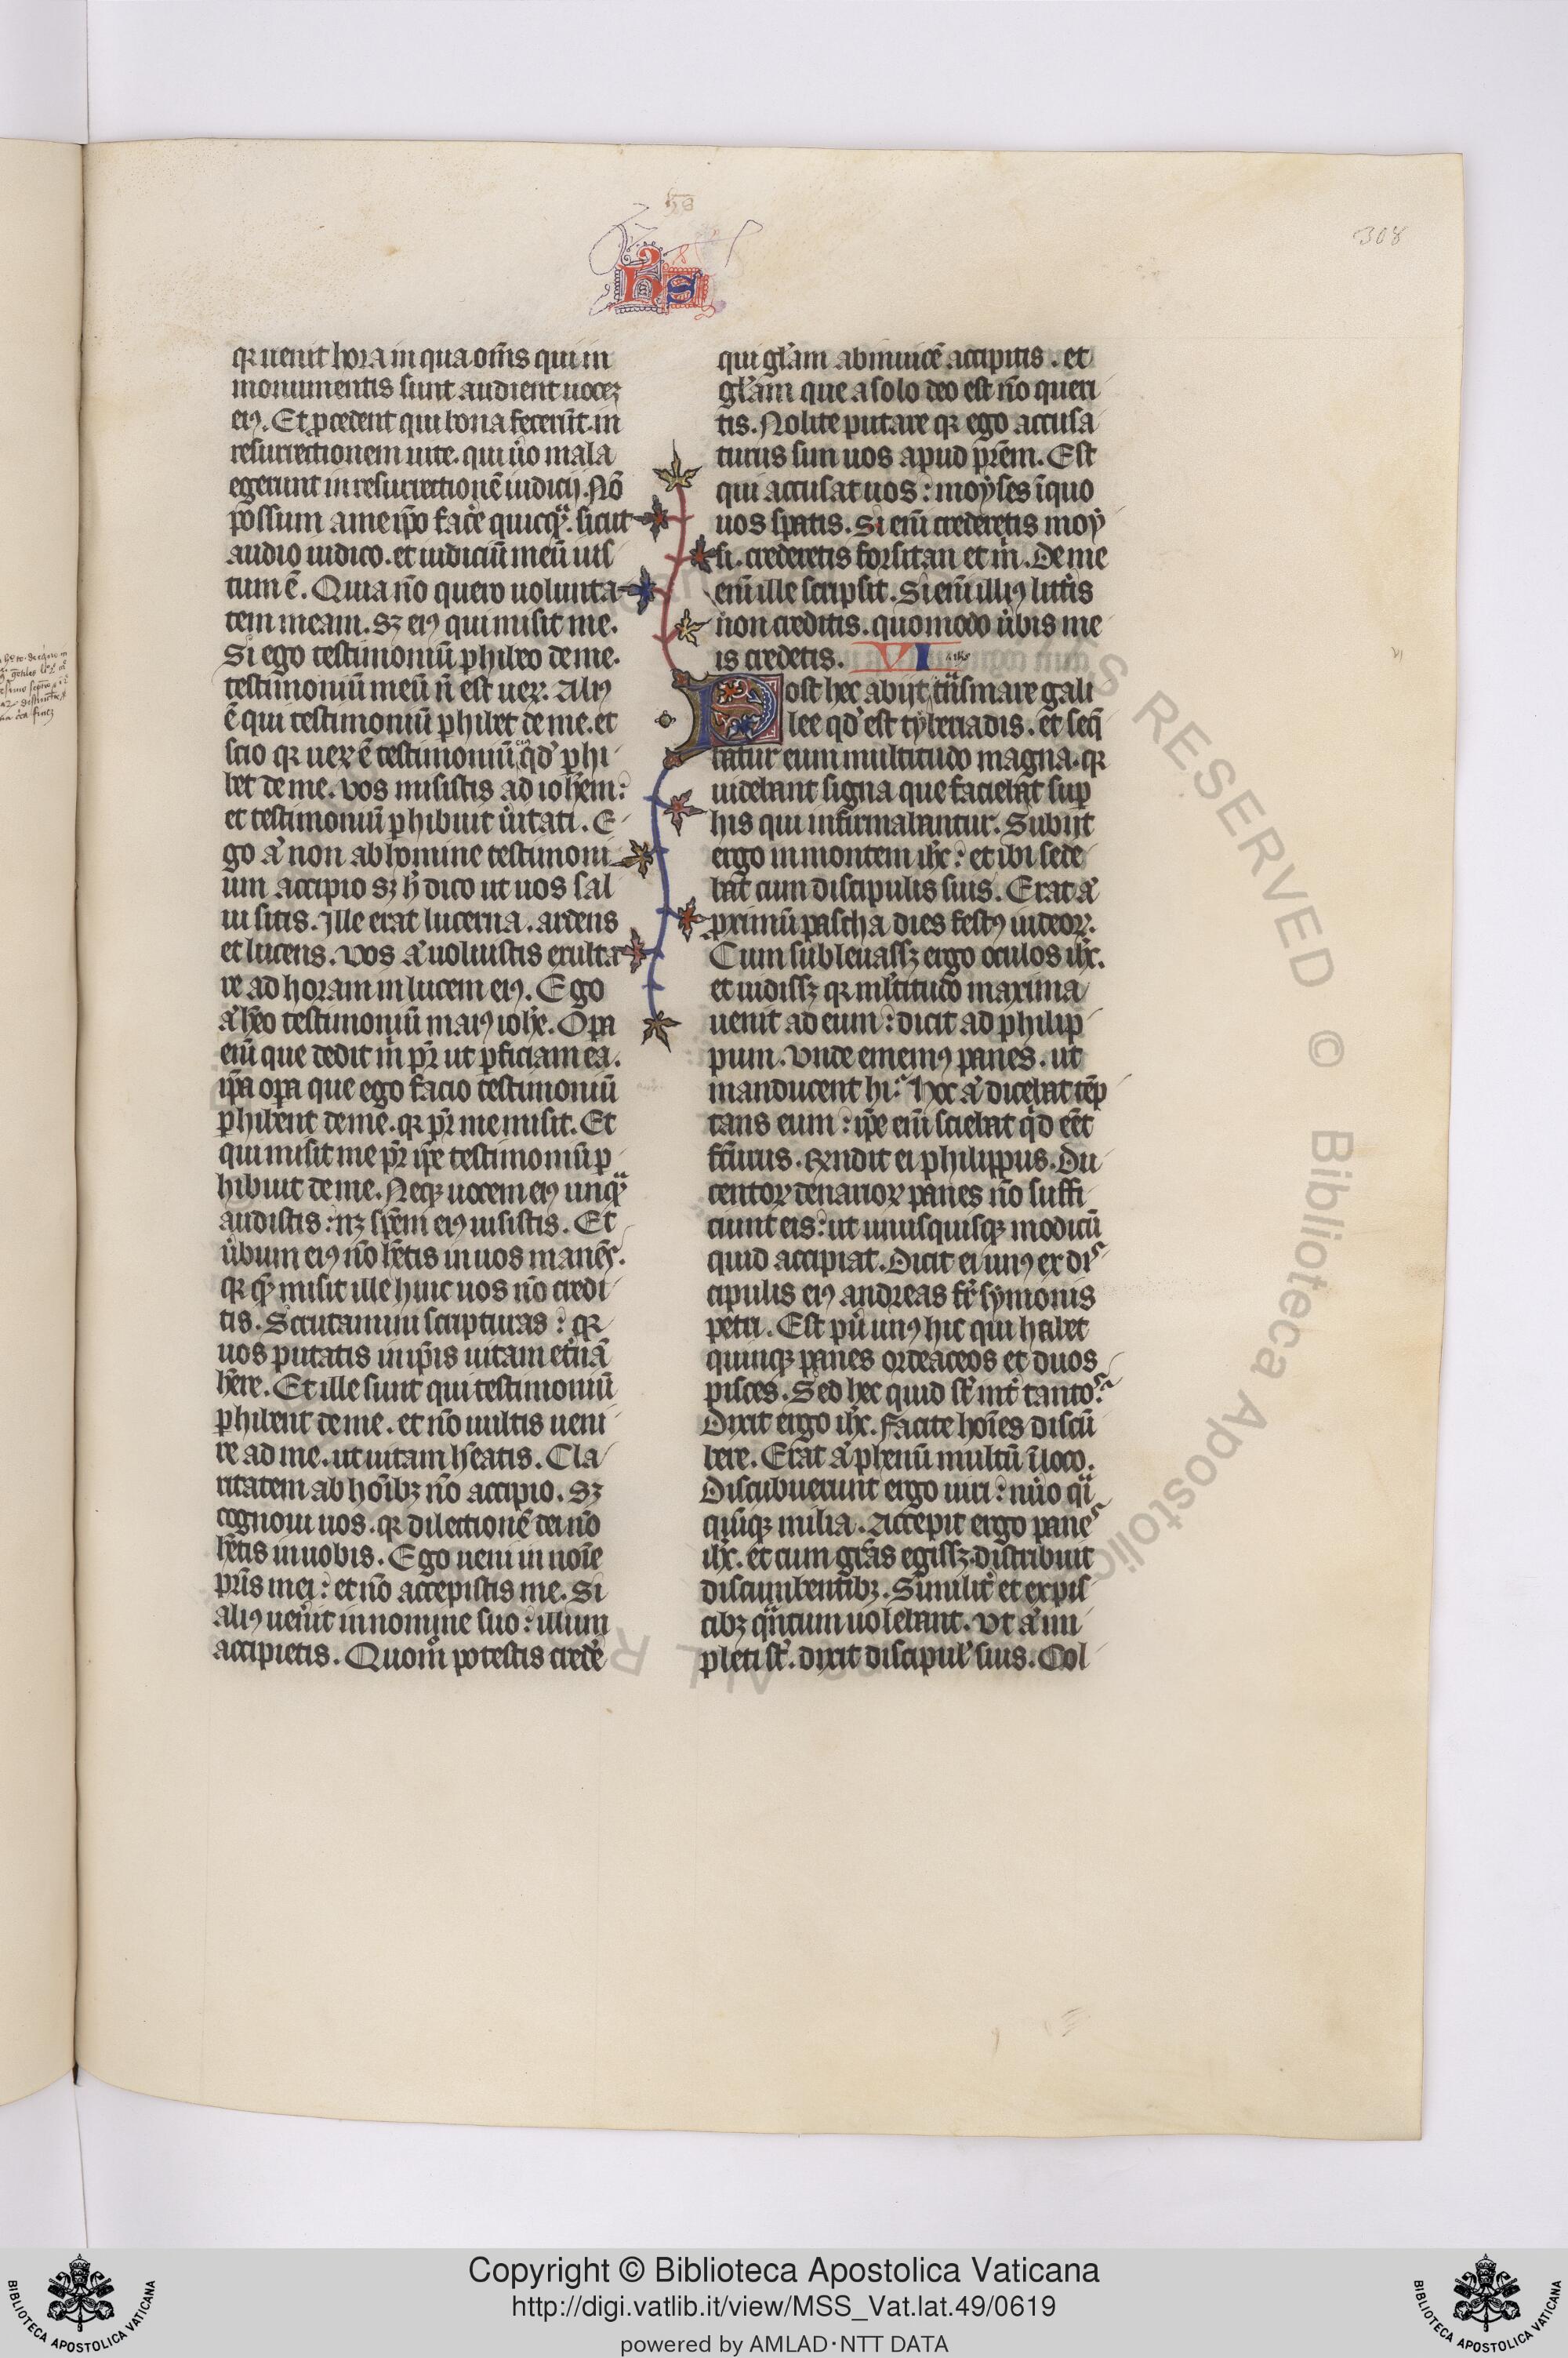 hs
308
qr uenit hora in qua om̄s qui in
monumentis sunt audient uocez
eiꝰ. Et ꝓcedent qui bona fecerūt. in
resurrectionem uite. qui u̓o mala
egerunt in resurrectionē iudicij. Nō
possum a me ip̄o fac̓e quicqͣ. sicut
audio iudico. et iudiciū meū ius
tum ē. Quia nō quero uolunta
tem meam. sꝫ eiꝰ qui misit me.
Si ego testimoniū ꝑhibeo de me.
testimoniū meū n̄ est ueꝝ. Aliꝰ
ē qui testimoniū ꝑhibet de me. et
scio qr ueꝝ ē testimoniū qd̓ ꝑhi
bet de me. Vos misistis ad ioh̄em:
et testimoniū ꝑhibuit u̓itati. E
go a̓ non ab homine testimoni
um accipio sꝫ h̓ dico ut uos sal
ui sitis. Ille erat lucerna. ardens
et lucens. Vos a̓ uoluistis exulta
re ad horam in luce eiꝰ. Ego
a̓ h̄eo testimoniū maiꝰ ioh̄e. Oꝑa
eni̅ que dedit m̓ pr̄ ut ꝑficiam ea.
ip̄a oꝑa que ego facio testimoniū
ꝑhibent de me. qr pr̄ me misit. Et
qui misit me pr̄ ip̄e testimoniū ꝑ
hibuit de me. Neqꝫ uocem eiꝰ unqͣ
audistis: nꝫ spēm eiꝰ uisistis. Et
u̓bum eiꝰ nō h̄etis in uos manēs.
qr qm̄ misit ille huic uos nō credi
tis. Scrutamini scripturas: qr
uos putatis in ip̄is uitam et̓nā
h̄ere. Et ille sunt qui testimoniū
ꝑhibent de me. et nō uultis ueni
re ad me. ut uitam h̄eatis. Cla
ritatem ab hoībꝫ nō accipio. Sꝫ
cognoui uos. qr dilectionē dei nō
h̄etis in uobis. Ego ueni in noīe
pr̄is mei: et nō accepistis me. Si
aliꝰ uen̓it in nomine suo: illum
accipietis. Quom̊ potestis cred̓e
qui gl̓am ab inuicē accipitis. et
gl̓am que a solo deo est nō queri
tis. Nolite putare qr ego accusa
turus sun uos apud pr̄em. Est
qui accusat uos: moyses ī quo
uos sꝑatis. Si eni̅ crederetis moy
si. crederetis forsitan et m̓. De me
eni̅ ille scripsit. Si eni̅ illiꝰ litt̓is
non creditis. quomodo u̓bis me
is credetis. VI
Post hec abijt tͣns mare gali
lee qd̓ est tyberiadis. et seq̄
batur eum multitudo magna. qr
uidebant signa que faciebat suꝑ
his qui infirmabantur. Subijt
ergo in montem ih̄c: et ibi sede
bat cum discipulis suis. Erat a̓
ꝓximū pascha dies festꝰ iudeoꝝ.
Cum subleuassꝫ ergo oculos ih̄c.
et uidissꝫ qr ml̓titudo maxima
uenit ad eum: dicit ad philip
pum. Vnde ememꝰ panes. ut
manducent hi: Hoc a̓ dicebat tēp
tans eum: ip̄e eni̅ sciebat qͥd eēt
fc̄urus. Rn̄dit ei philippus. Du
centoꝝ denarioꝝ panes nō suffi
ciunt eis: ut unusquisqꝫ modicū
quid accipiat. Dicit ei unꝰ ex dis
cipulis eiꝰ andreas fr̄ symonis
petri. Est pu̓ unꝰ hic qui habet
quinqꝫ panes ordeaceos et duos
pisces. Sed hec quid st̄ int̓ tantos:
Dixit ergo ih̄c. Facite hoīes discū
bere. Erat a̓ phenū multū ī loco.
Discubuerunt ergo uiri: nu̓o qͣi
quīqꝫ milia. Accepit ergo panes
ih̄c. et cum gr̄as egissꝫ. distribuit
discumbentibꝫ. Similit̓ et ex pis
cibꝫ qͣntum uolebant. Vt a̓ im
pleti st̄. dixit discipul̓ suis. Col
Copyright © Biblioteca Apostolica Vaticana
http://digi.vatlib.it/view/MSS_Vat.lat.49/0619
powered by AMLAD·NTT DATA
BIBLIOTECA APOSTOLICA VATICANA
BIBLIOTECA APOSTOLICA VATICANA